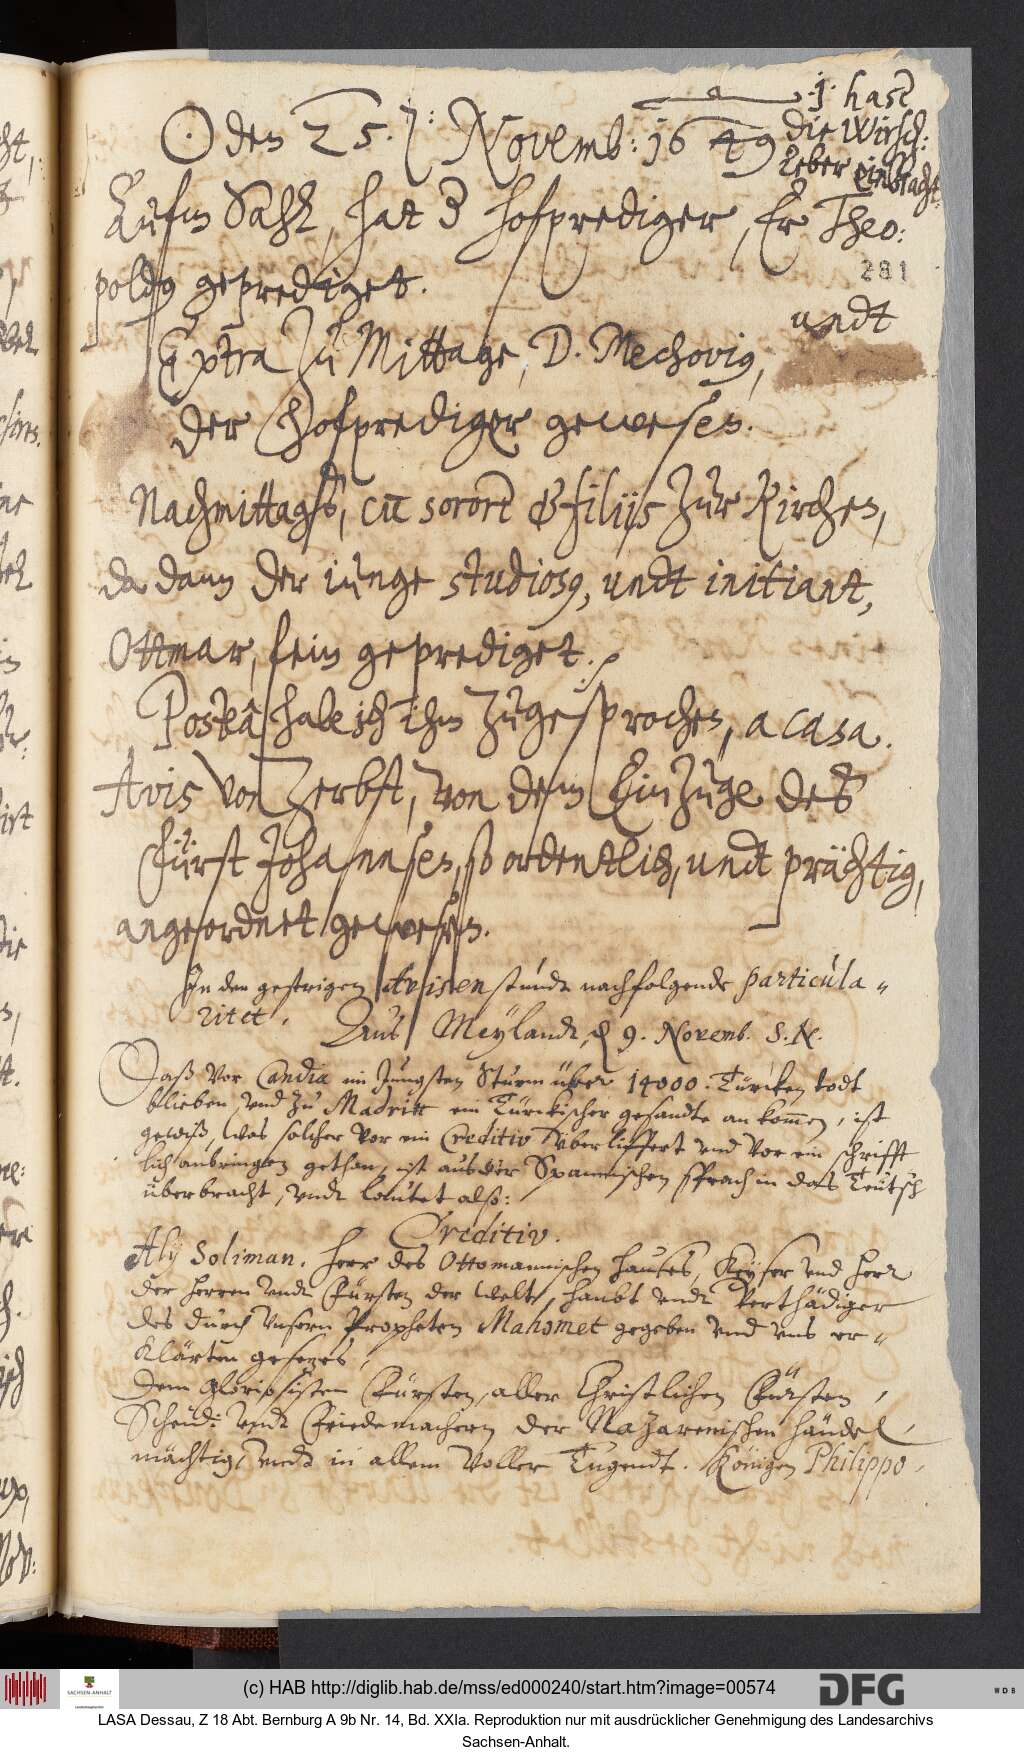 ⊙ den 25. Novemb: 1649
1 hase
die Wirsch:
Leber einbracht.
Aufm Sahl, hat der hofprediger, Er Theo:
281
poldus geprediget.
Extra zu Mittage, D. Mechovius, undt
der hofprediger gewesen.
Nachmittags, cum sorore & filijs zur Kirchen,
da dann der iunge studiosus, undt initiant,
Ottmar, fein geprediget.
Posteâ habe ich ihm zugesprochen, a casa.
Avis von Zerbst, von dem Einzuge des
Fürst Johannsen, so ordentlich, undt prächtig,
angeordnet gewesen.
In den gestrigen Avisen stunde nachfolgende particula„
ritet. Aus Meylandt, 9. Novemb. S. N.
Daß vor Candia im Jungsten Sturm über 14000. Türcken todt
blieben, und zu Madritt ein Türckischer gesandte an kommen, ist
gewiß, was solcher vor ein Creditiv überliffert und vor ein schrifft
lich anbringen gethan, ist aus der Spannischen sprach in das Teutsch
überbracht, undt lautet alß:
Creditiv.
Aly Soliman. herr des Ottomannischen hauses, Keyser und herr
der herren undt Fürsten der welt, haubt undt Verthädiger
des durch unsern Propheten Mahomet gegeben und uns er„
klärten gesezes,
Dem gloriosisten Fürsten, aller Christlichen Fürsten,
Scheid: undt Friedemachern der Nazarenischen händel,
mächtig, undt in allem voller Tugendt. Königen Philippo,
(c) HAB http://diglib.hab.de/mss/ed000240/start.htm?image=00574
SACHSEN-ANHALT
DFG
WDB
LASA Dessau, Z 18 Abt. Bernburg A 9b Nr. 14, Bd. XXIa. Reproduktion nur mit ausdrücklicher Genehmigung des Landesarchivs
Sachsen-Anhalt.